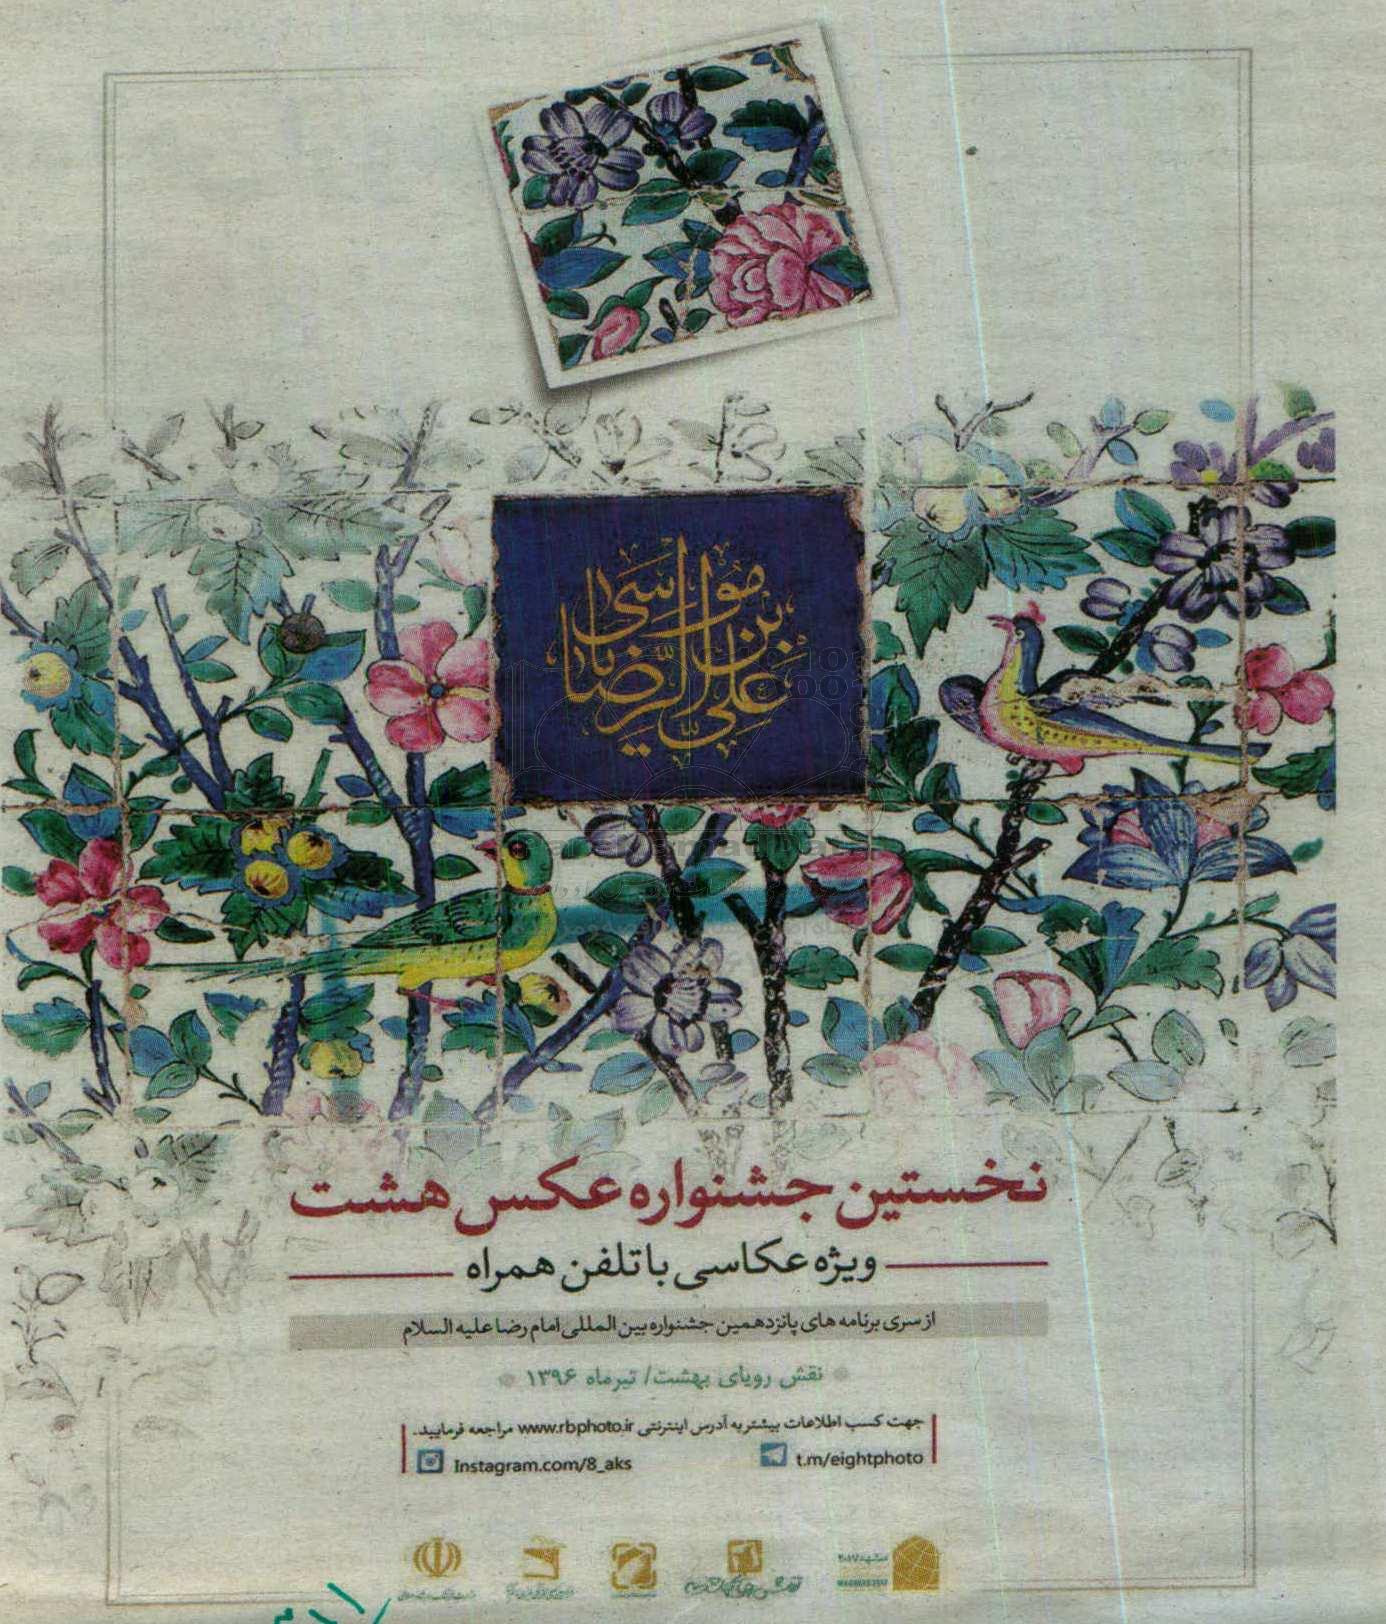 علی بن موسی الرضا
نخستین جشنواره عکس هشت
ویژه عکاسی با تلفن همراه
از سری برنامه های پانزدهمین جشنواره بین المللی امام رضا علیه السلام
نقش رویای بهشت/ تیرماه ۱۳۹۶
جهت کسب اطلاعات بیشتر به آدرس اینترنتی www.rbphoto.ir مراجعه فرمایید.
t.m/eightphoto
Instagram.com/8_aks
مشهد ۲۰۱۷
MASHHAD 2017